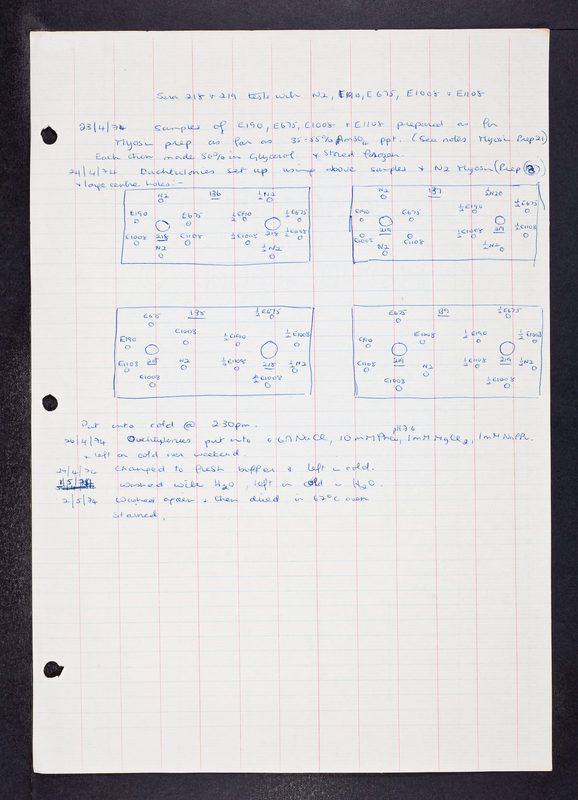 Sera 218 + 219 tests with N2, E190, E675, E1008 + E1108
23/4/74 Samples of E190, E675, E1008 + E1108 prepared as for
Myosin prep as far as 35-55% AmSO4 ppt. (See notes Myosin Prep 21)
Each then made 50% in Glycerol + stored frozen.
24/4/74 Ouchterlonies set up using above samples + N2 Myosin (Prep 8)
+ large centre holes:-
N2 136 ½N2
E190 E675 ½E190 ½E675
218 218
E1008 E1108 ½E1008 ½E1108
N2 ½N2
N2 137 ½N2
E190 E675 ½E190 ½E675
219 219
E1008 E1108 ½E1008 ½E1108
N2 ½N2
E675 138 ½E675
E190 E1008 ½E190 ½E1008
218 218
E1108 N2 ½E1108 ½N2
E1008 ½E1008
E675 139 ½E675
E190 E1008 ½E190 ½E1008
219 219
E1108 N2 ½E1108 ½N2
E1008 ½E1008
Put into cold @ 2.30pm.
pH 7.6
26/4/74 Ouchterlonies put into 0.6M NaCl, 10mM PO4, 1mM MgCl2, 1mM
+ left in cold over weekend.
29/4/74 Changed to fresh buffer + left in cold.
1/5/74 Washed with H2O, left in cold in H2O.
2/5/74 Washed again + then dried in 62°C oven
Stained.